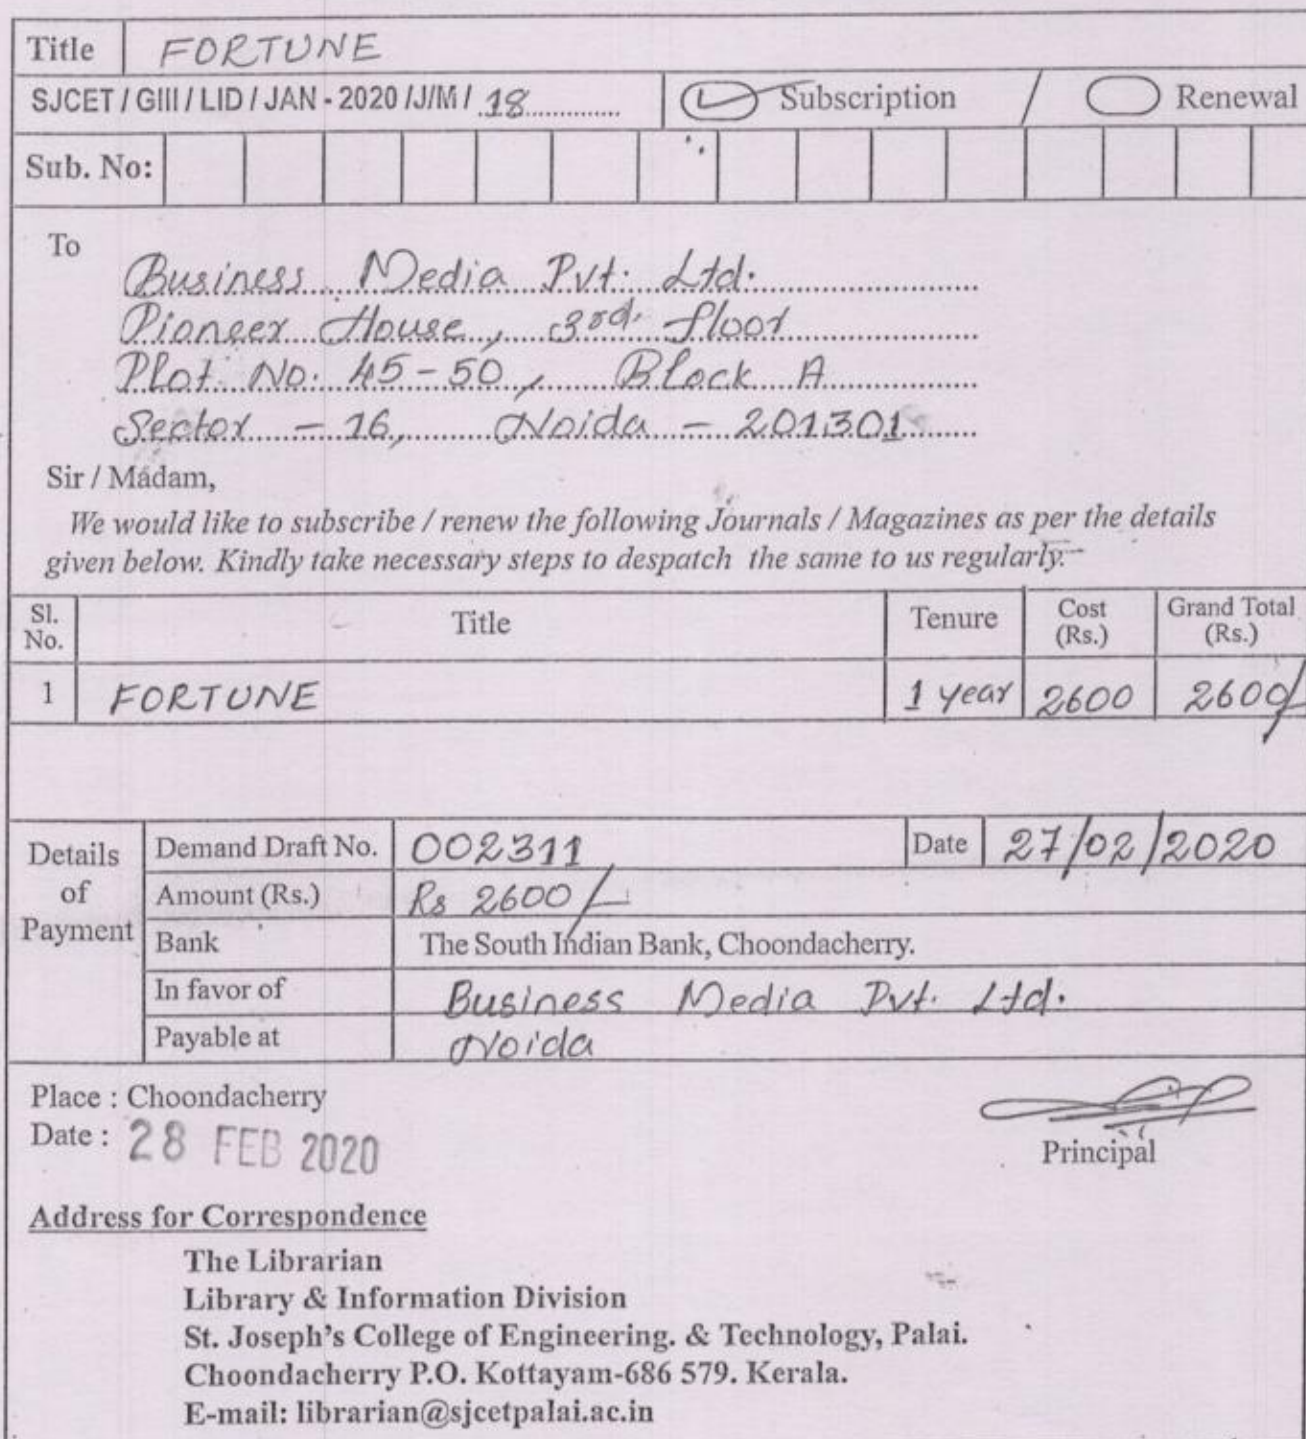 Title FORTUNE
SJCET / GIII / LID / JAN - 2020 /J/M/ 18 Subscription / Renewal
Sub. No:
To
Business Media Pvt. Ltd.
Pioneer House, 3rd. floor
Plot No. 45-50, Block A
Sector - 16, Noida - 201301
Sir / Madam,
We would like to subscribe / renew the following Journals / Magazines as per the details
given below. Kindly take necessary steps to despatch the same to us regularly.
Sl. No. Title Tenure Cost (Rs.) Grand Total (Rs.)
1 FORTUNE 1 year 2600 2600/-
Details of Payment
Demand Draft No. 002311 Date 27/02/2020
Amount (Rs.) Rs 2600/-
Bank The South Indian Bank, Choondacherry.
In favor of Business Media Pvt. Ltd.
Payable at Noida
Place : Choondacherry
Date : 28 FEB 2020
Principal
Address for Correspondence
The Librarian
Library & Information Division
St. Joseph's College of Engineering. & Technology, Palai.
Choondacherry P.O. Kottayam-686 579. Kerala.
E-mail: librarian@sjcetpalai.ac.in